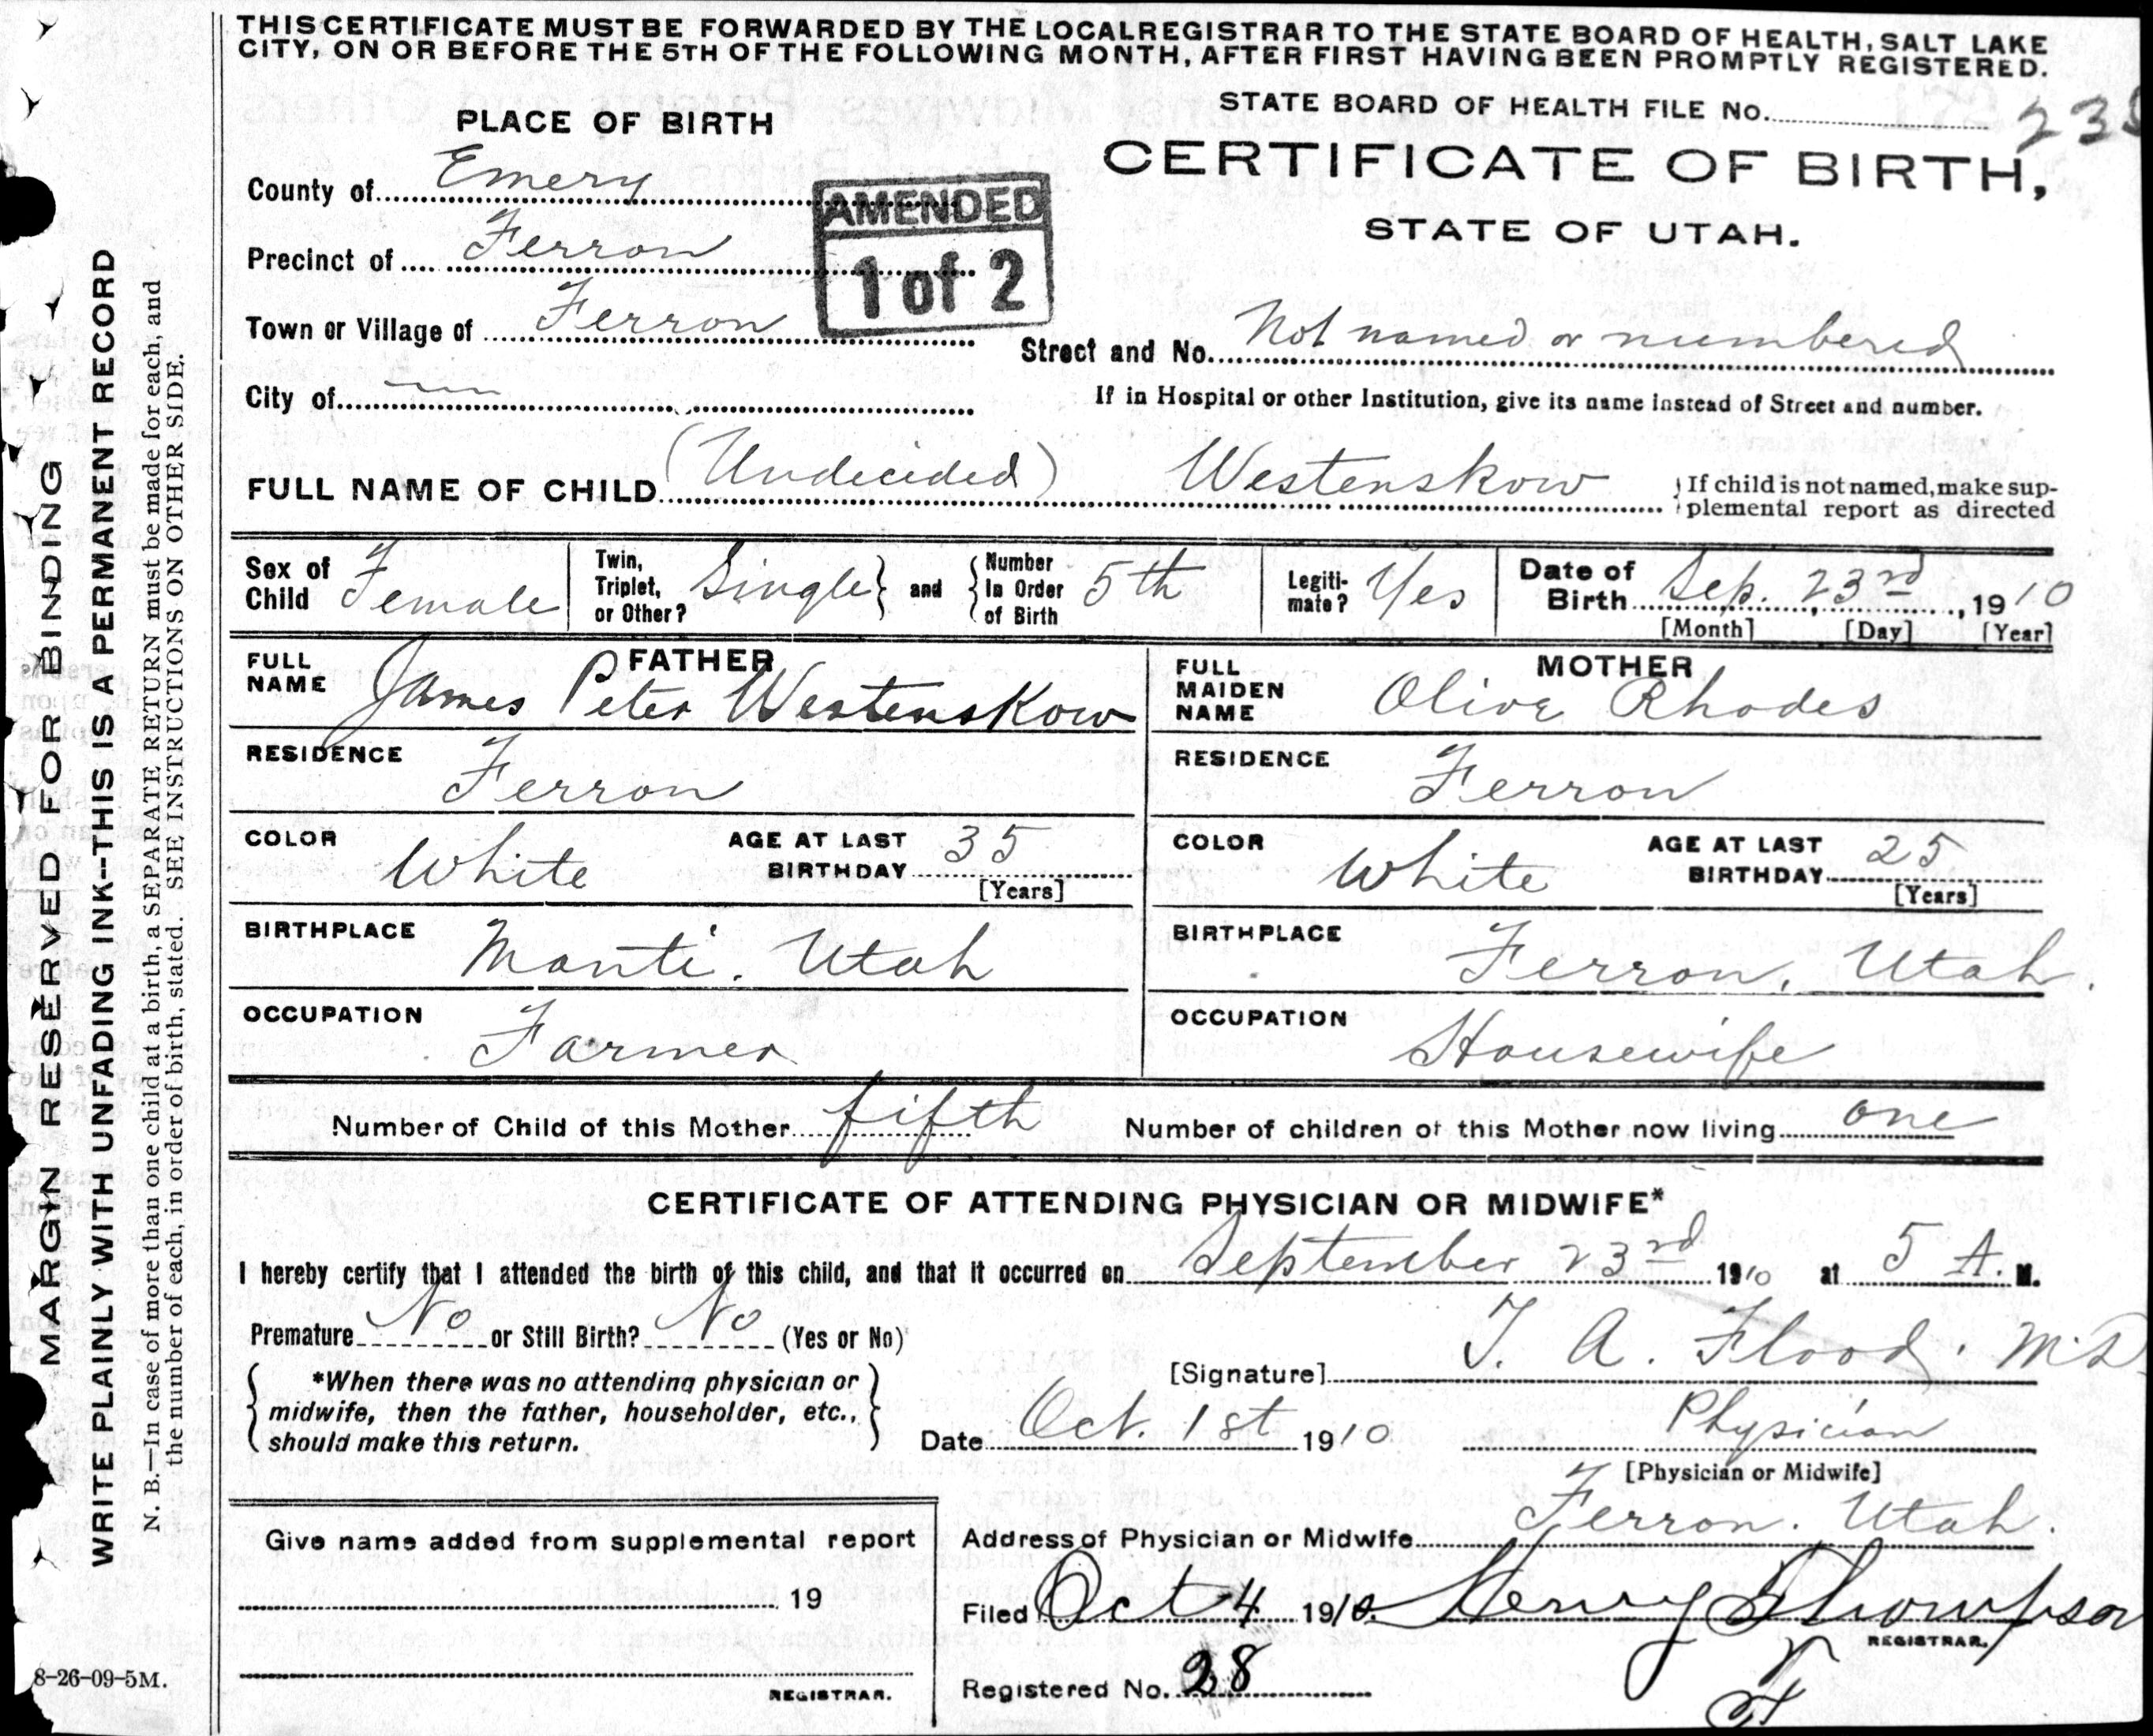 THIS CERTIFICATE MUST BE FORWARDED BY THE LOCAL REGISTRAR TO THE STATE BOARD OF HEALTH, SALT LAKE
CITY, ON OR BEFORE THE 5TH OF THE FOLLOWING MONTH, AFTER FIRST HAVING BEEN PROMPTLY REGISTERED.
STATE BOARD OF HEALTH FILE No.
CERTIFICATE OF BIRTH,
STATE OF UTAH.
PLACE OF BIRTH
County of Emery
Precinct of Ferron
Town or Village of Ferron
City of
AMENDED
1 of 2
Street and No. Not named or numbered
If in Hospital or other Institution, give its name instead of Street and number.
FULL NAME OF CHILD (Undecided) Westenskow
If child is not named, make sup-
plemental report as directed
Sex of Child Female
Twin, Triplet, or Other? Single and Number In Order of Birth 5th
Legiti-mate? Yes
Date of Birth Sep. 23rd, 1910
[Month] [Day] [Year]
FATHER
FULL NAME James Peter Westenskow
RESIDENCE Ferron
COLOR White AGE AT LAST BIRTHDAY 35
[Years]
BIRTHPLACE Manti. Utah
OCCUPATION Farmer
MOTHER
FULL MAIDEN NAME Olive Rhodes
RESIDENCE Ferron
COLOR White AGE AT LAST BIRTHDAY 25
[Years]
BIRTHPLACE Ferron, Utah.
OCCUPATION Housewife
Number of Child of this Mother fifth Number of children of this Mother now living one
CERTIFICATE OF ATTENDING PHYSICIAN OR MIDWIFE*
I hereby certify that I attended the birth of this child, and that it occurred on September 23rd 1910 at 5 A. M.
Premature No or Still Birth? No (Yes or No)
*When there was no attending physician or
midwife, then the father, householder, etc.,
should make this return.
[Signature] T. A. Flood. M.D
Date Oct. 1st 1910 Physician
[Physician or Midwife]
Address of Physician or Midwife Ferron. Utah.
Give name added from supplemental report
19
REGISTRAR.
Filed Oct 4 1910. Henry Thompson
REGISTRAR.
Registered No. 28
8-26-09-5M.
MARGIN RESERVED FOR BINDING
WRITE PLAINLY WITH UNFADING INK--THIS IS A PERMANENT RECORD
N. B.—In case of more than one child at a birth, a SEPARATE RETURN must be made for each, and
the number of each, in order of birth, stated. SEE INSTRUCTIONS ON OTHER SIDE.